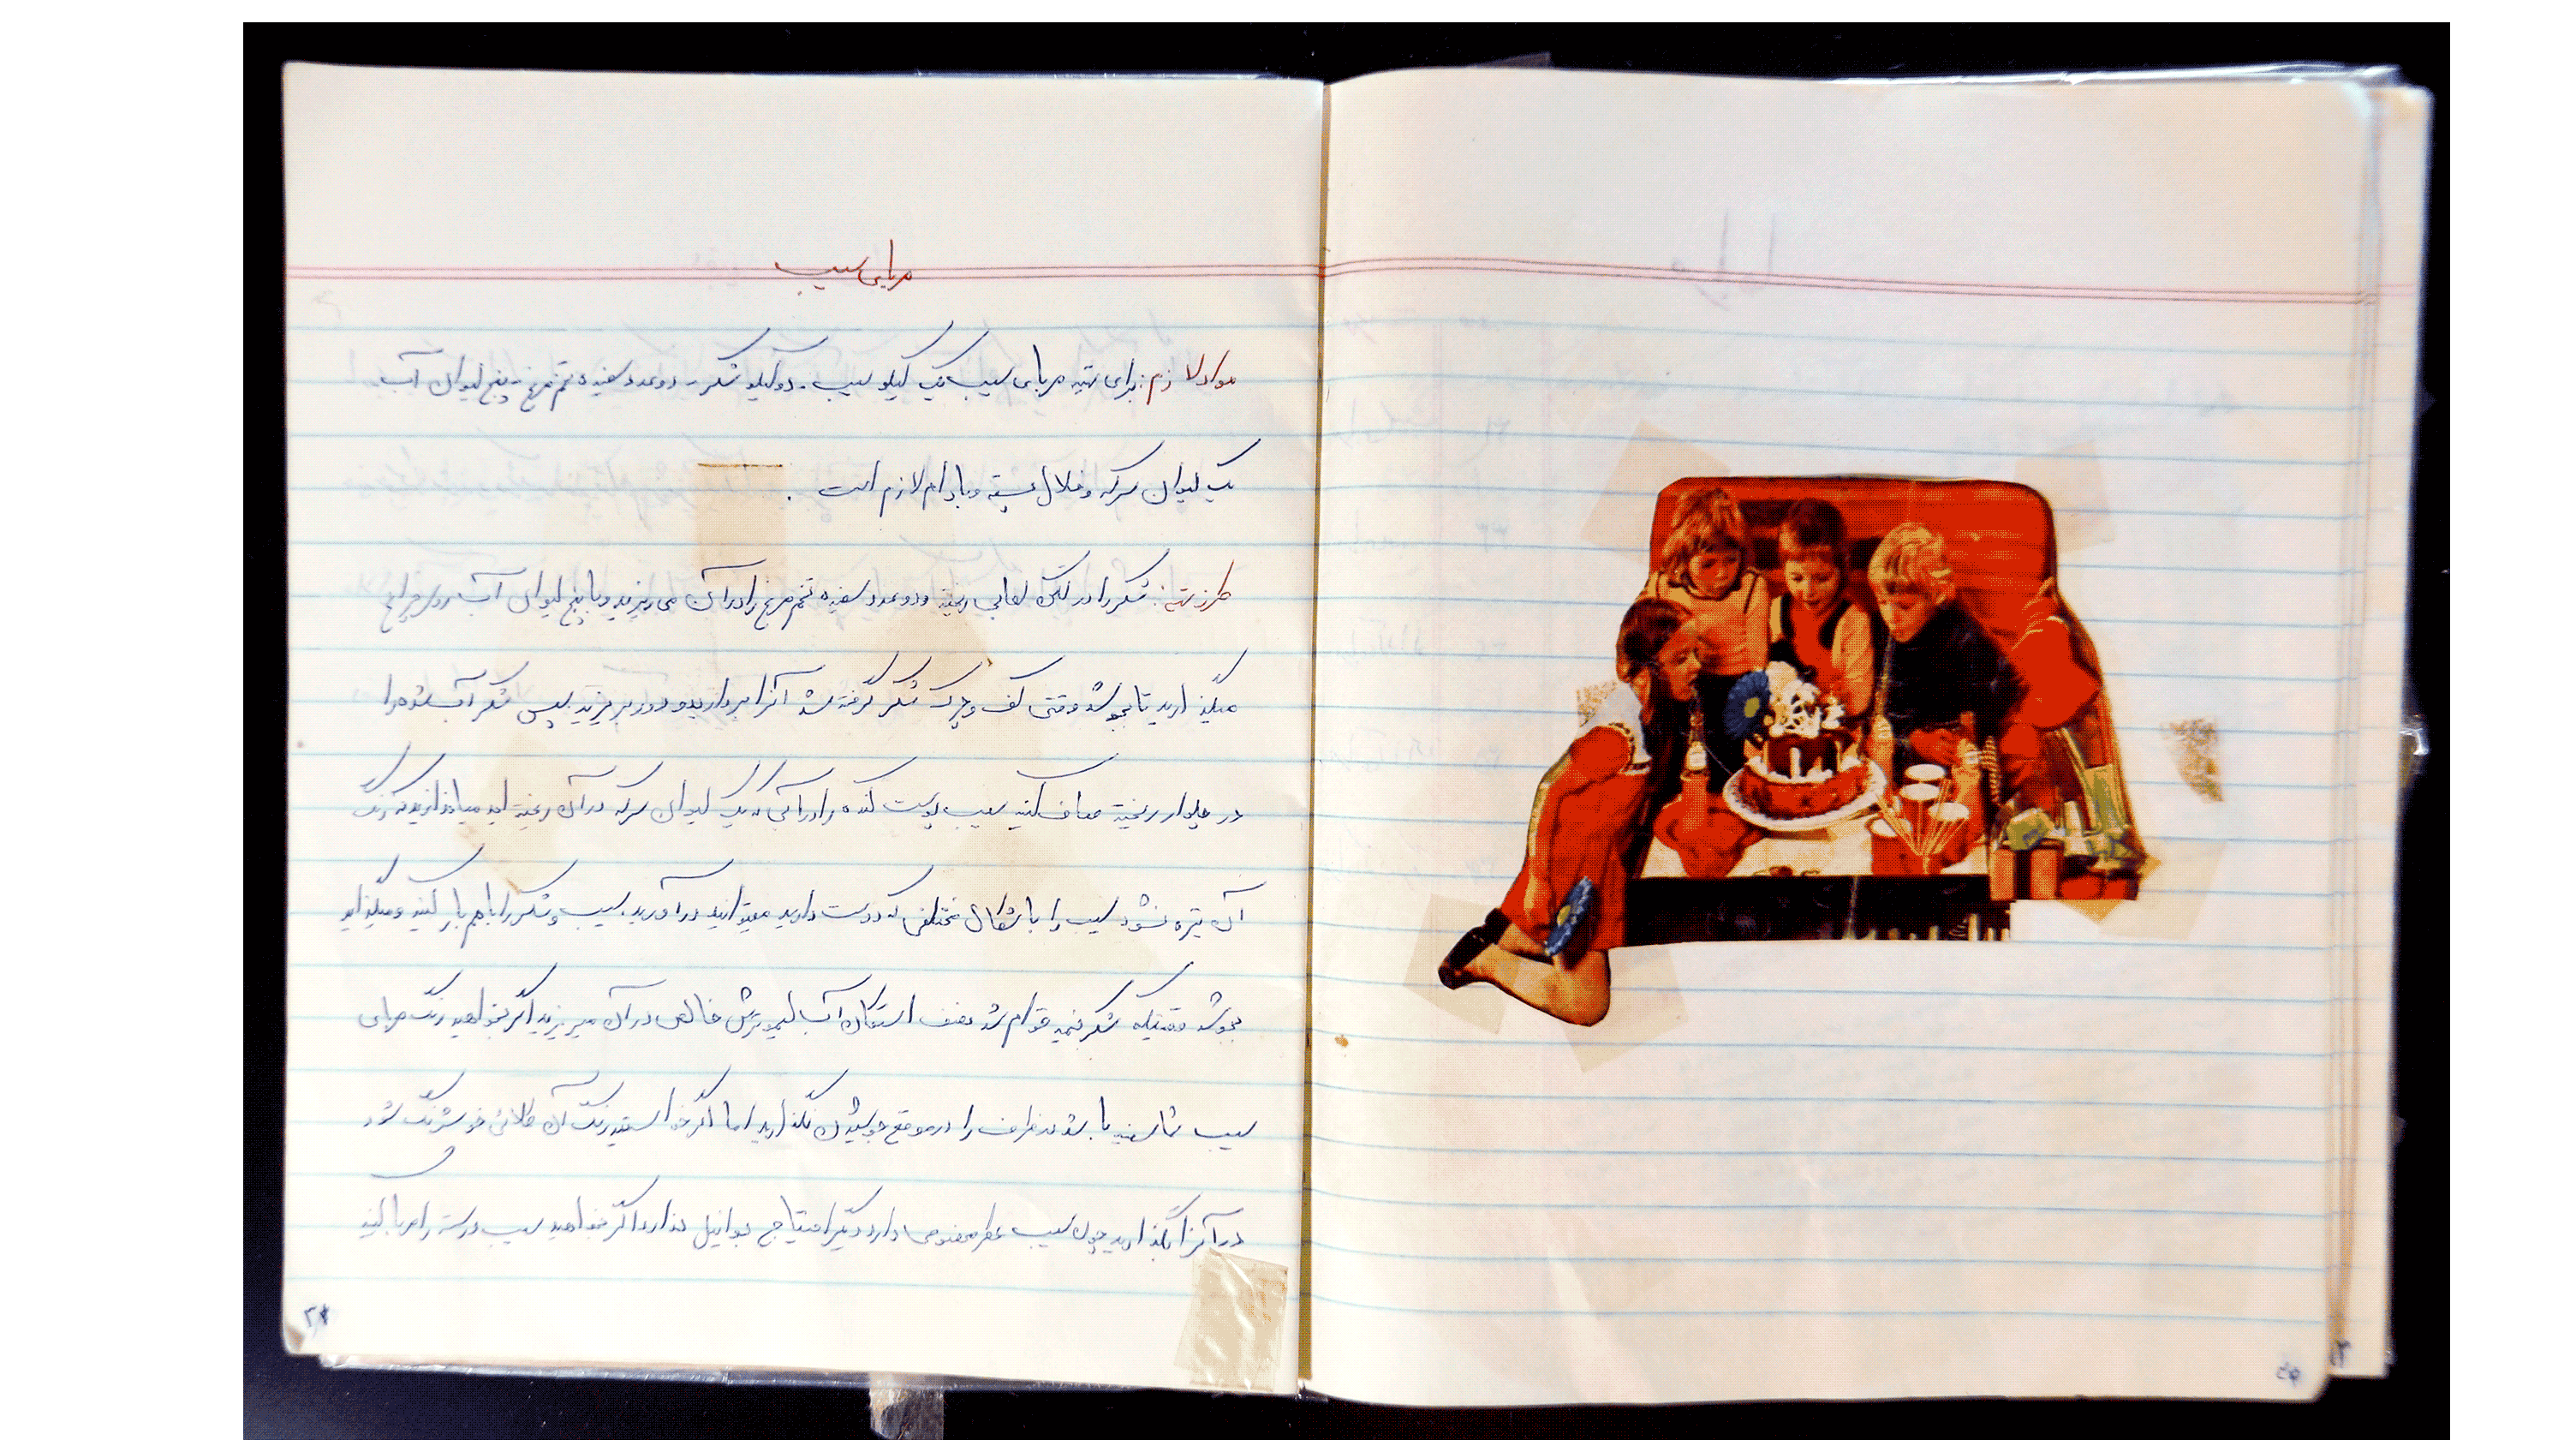 مربای سیب
مواد لازم: برای تهیه مربای سیب یک کیلو سیب - دو کیلو شکر - دو عدد سفیده تخم مرغ - پنج لیوان آب
یک لیوان سرکه و خلال پسته و بادام لازم است.
طرز تهیه: شکر را در لگن لعابی ریخته و دو عدد سفیده تخم مرغ را در آن می ریزید و با پنج لیوان آب روی چراغ
میگذارید تا بجوشد وقتی کف و چرک شکر گرفته شد آنرا بردارید و دور بریزید سپس شکر آب شده را
در چلوار ریخته صاف کنید سیب پوست کنده را در آبی که یک لیوان سرکه در آن ریخته اید میاندازید که رنگ
آن تیره نشود سیب را باشکال مختلفی که دوست دارید میتوانید درآورید. سیب و شکر را باهم بار کنید و میگذارید
بجوشد وقتیکه شکر نیمه قوام شد نصف استکان آب لیمو ترش خالص در آن میریزید اگر بخواهید رنگ مربای
سیب شما سفید باشد در ظرف را در موقع جوشیدن نگذارید اما اگر خواستید رنگ آن طلائی خوشرنگ شود
در آنرا بگذارید چون سیب عطر مخصوصی دارد دیگر احتیاج بوانیل ندارد اگر بخواهید سیب درسته را مربا کنید